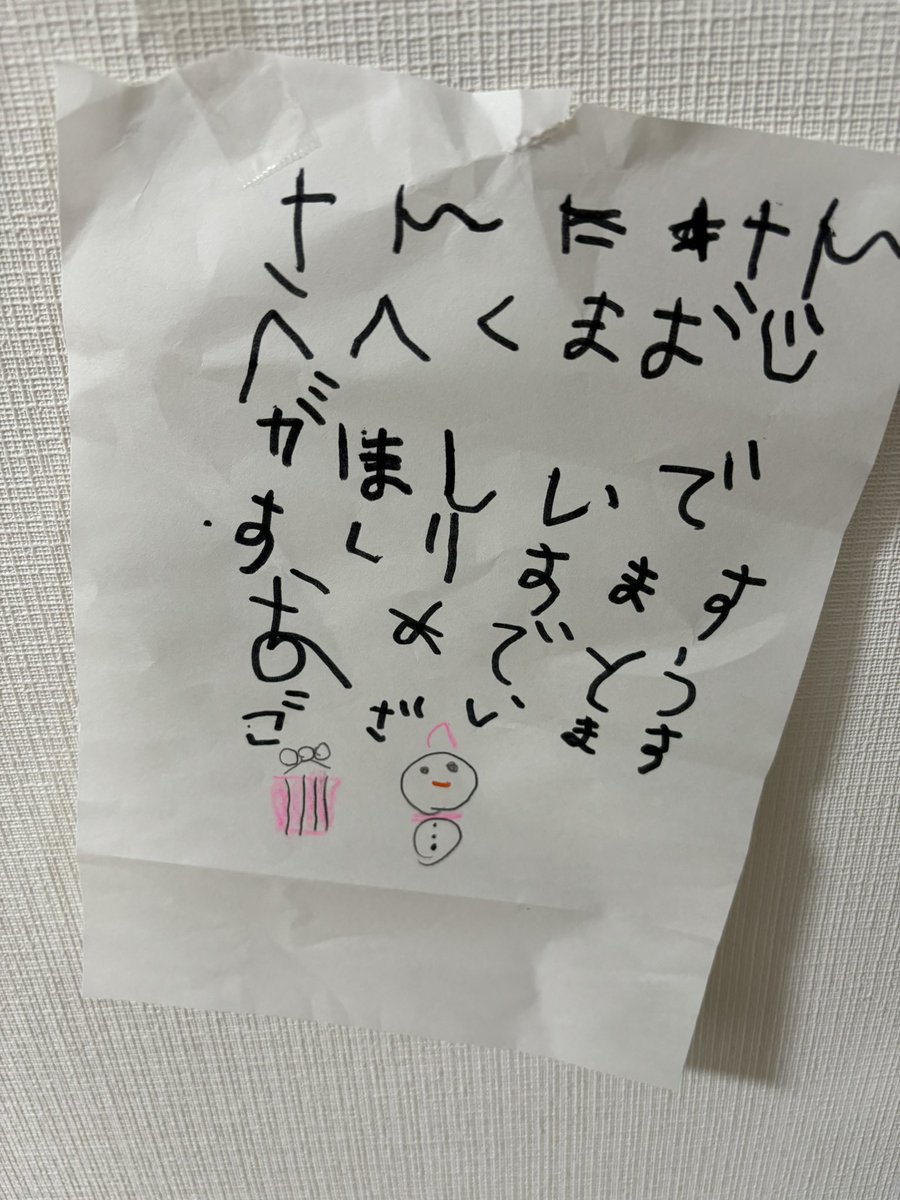 さんたさん
へへくまおじ
がほしいで
すくりすます
おめでとう
ございます